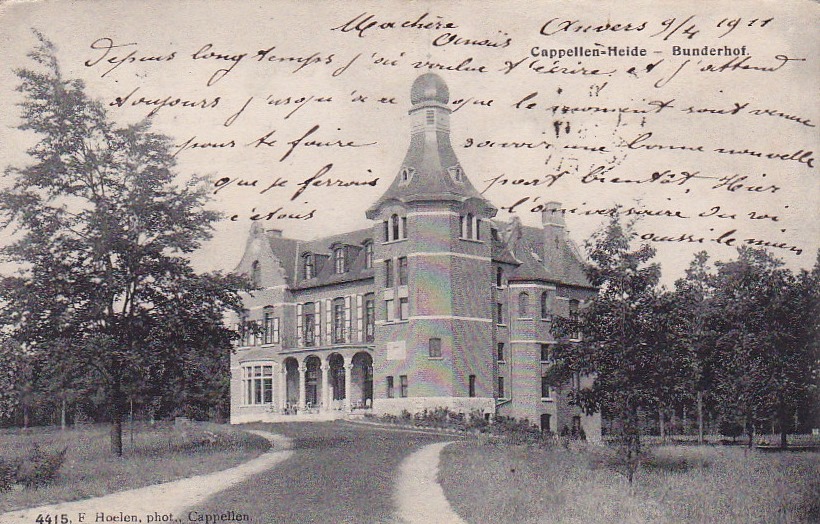 Ma chère Anvers 9/4 1911
Anaïs
Cappellen-Heide – Bunderhof.
Depuis longtemps j'ai voulue t'écrire, et j'attend
toujours j'usqu'a ce que le moment soit venue
pour te faire savoir une bonne nouvelle
que je ferrois part bientôt, Hier
c'étais l'anniversaire du roi
aussi le mien
4415, F. Hoelen, phot., Cappellen.